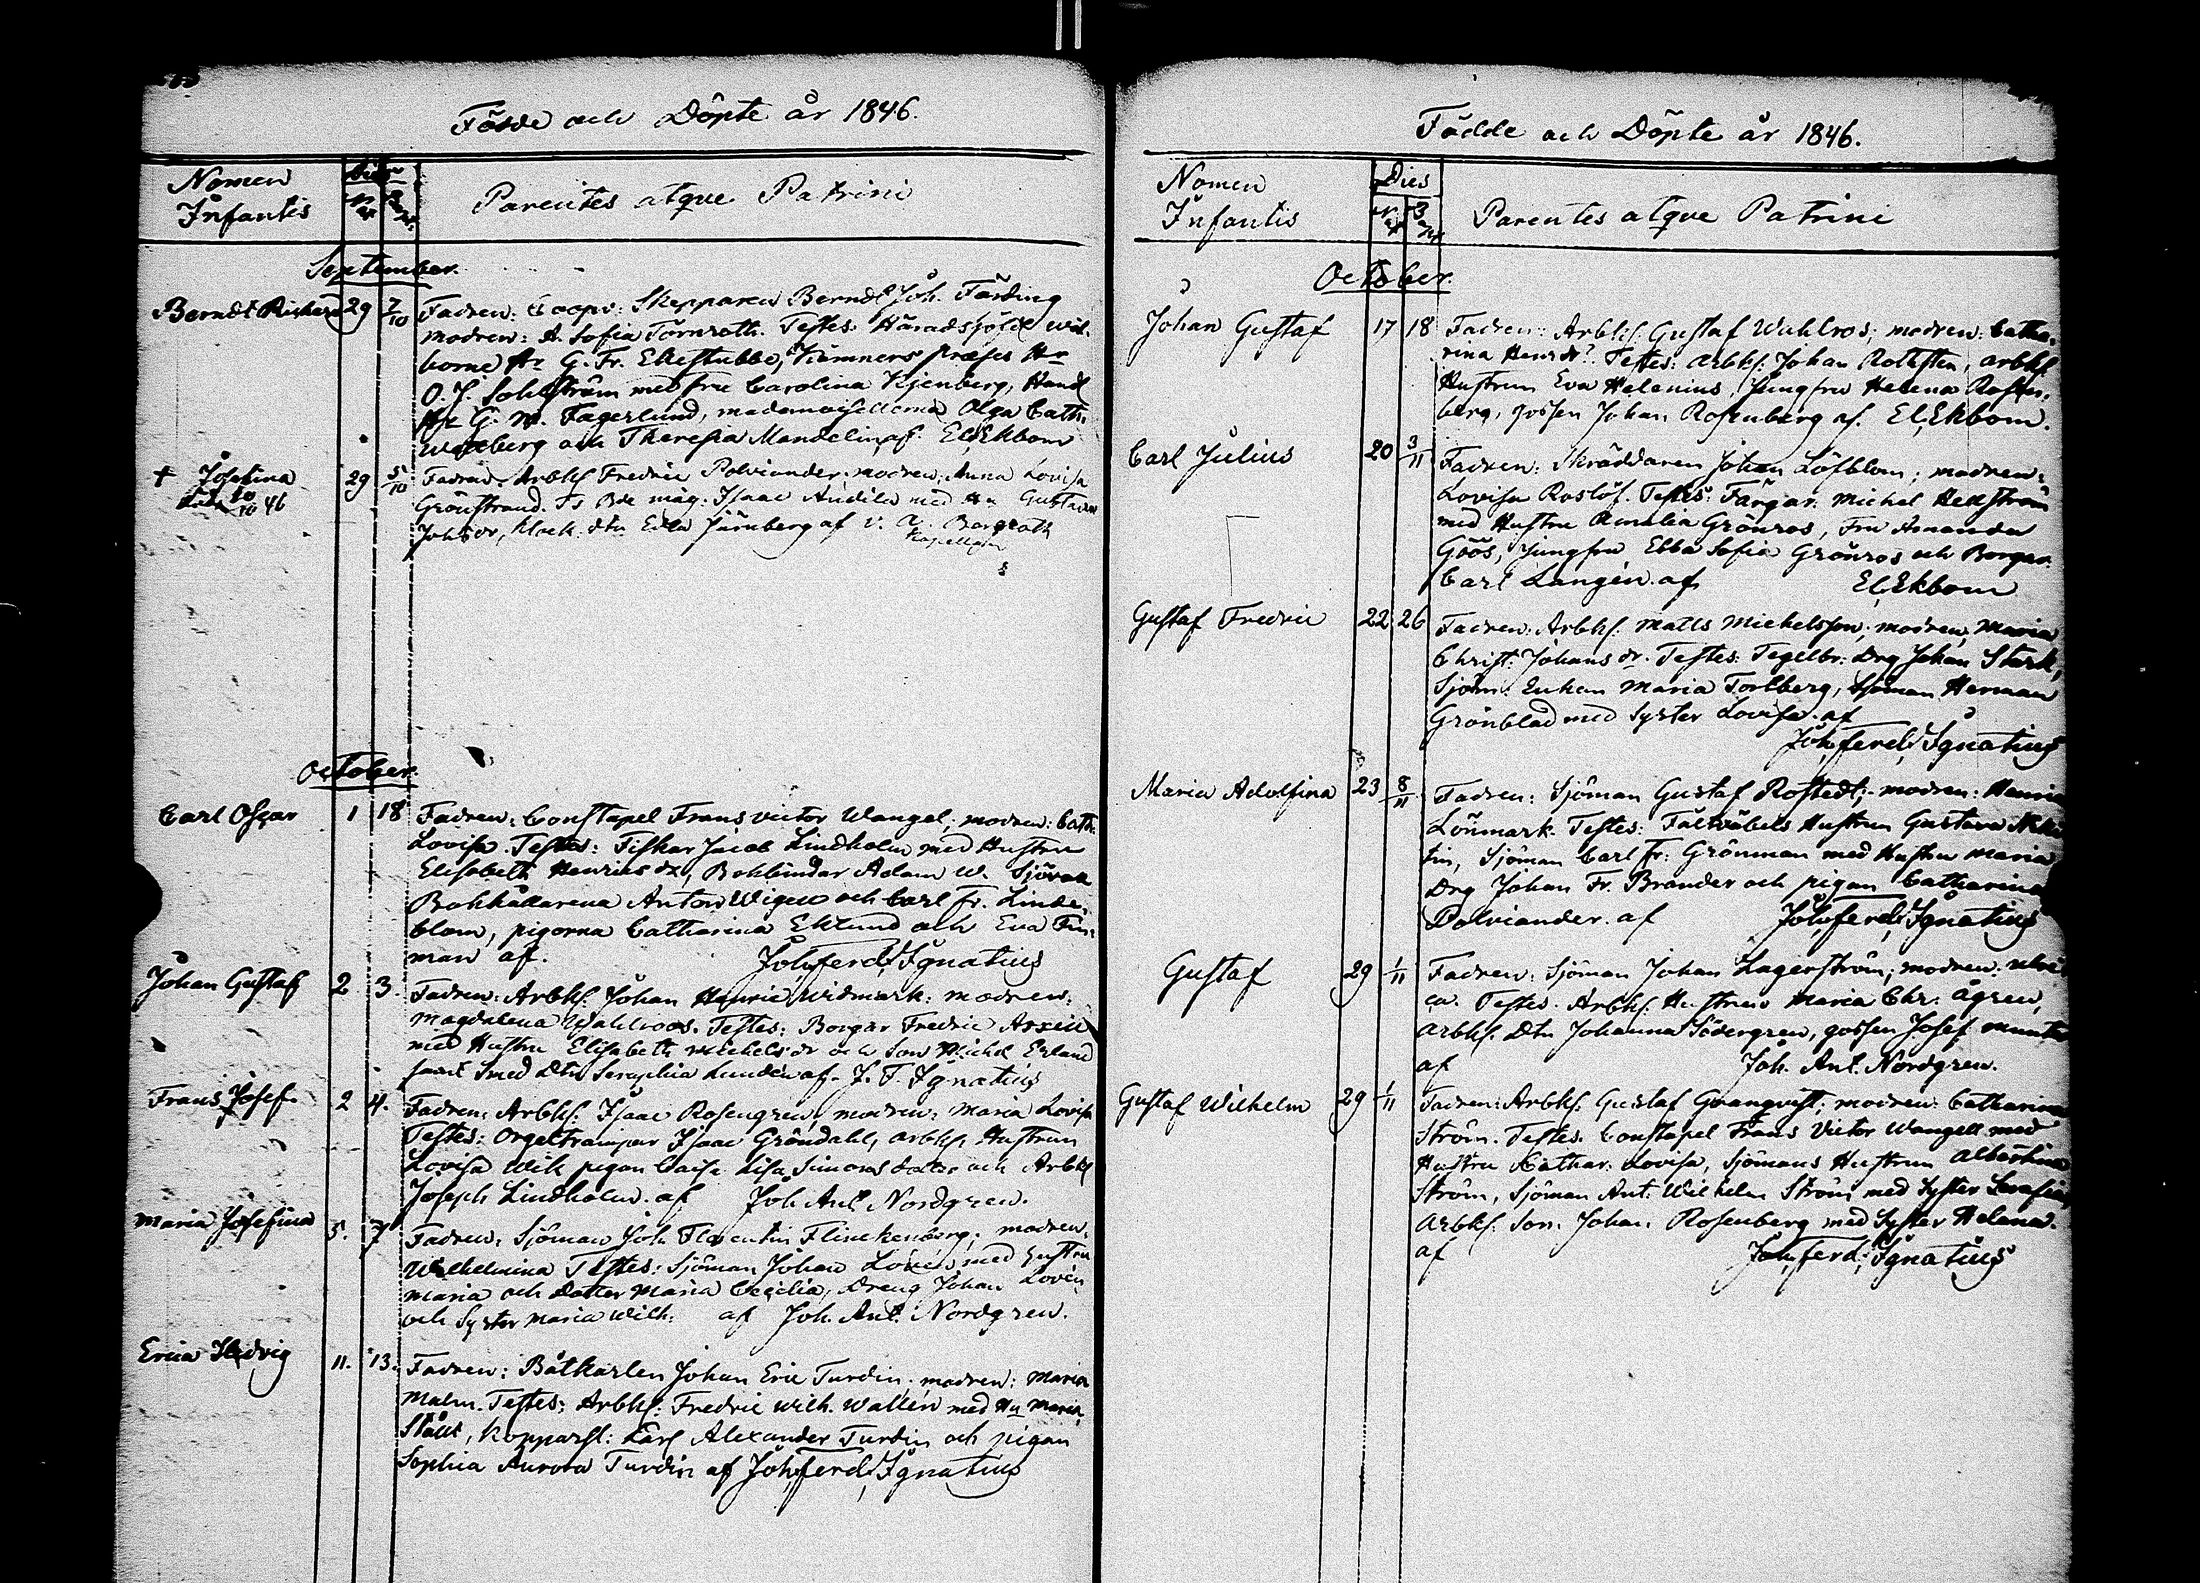 Födde och Döpte år 1846.
Nomen
Infantis
Dies
Parentes atque Patrini
September.
Berndt Richard 29 7/10 Fadren: Coopv: Skepparen Berndt Joh. Färding
modren: A. Sofia Törnroth. Testes: Häradshöfd: wäl-
borne Hr G. Fr. Ekestubbe, Kämners Præses Hr
O. J. Sohlström med fru Carolina Kjenberg, Handl
Hr G. W. Fagerlund, mademoisellerna Olga Cath:
och Theresia Mandelin af El. Ekbom
† Josefina 29 5/10 Fadren Arbks Fredric Polviander; modren: Anna Lovisa
46 Grönstrand. Ts Bde mäg. Isaac med Hu Gustava
Johsdr, Klock. dtn Edla Järnberg af v. Borgroth
Kapellan
October.
Carl Oscar 1 18 Fadren: Constapel Frans victor Wangel, modren: Cath:
Lovisa. Testes: Fiskar Jacob Lindholm med Hustru
Elisabeth Henricsdr, Bokbindar Adam W.
Bokhållarena Anton Wigew och Carl Fr. Linde-
blom, pigorna Catharina Eklund och Eva Fin-
man af. Joh, ferd, Ignatius
Johan Gustaf 2 3. Fadren: Arbks: Johan Henric Widmark: modren:
Magdalena Wahlroos. Testes: Borgar Fredric
med Hustru Elisabeth Michelsdr och Son Michel Erland
samt Smed Dtn Seraphia Lundén af. J. F. Ignatius
Frans Josef. 2 4. Fadren: Arbks: Isaac Rosengren, modren: Maria Lovisa
Testes: Orgeltrampar Isaac Gröndahl, arbks, Hustrun
Lovisa Wik pigan Caisa Lisa Simonsdotter och Arbks
Joseph Lindholm. af Joh Ant. Nordgren.
Maria Josefina 5. 7 Fadren: Sjöman Joh. Florentin Flinckenberg; modren:
Wilhelmina Testes: Sjöman Johan Lovén med hustru
Maria och Dotter Maria Cecilia, Dreng Johan Lovén
och Syster Maria Wilh: af Joh. Ant. Nordgren.
Erica Hedvig 11. 13. Fadren: Båtkarlen Johan Eric Turdin; modren: Maria
Malm. Testes: Arbks: Fredric Wilh. Wallén med Hu Maria
Ståhl, Kopparsl: Carl Alexander Turdin och pigan
Sophia Aurora Turdin af Joh, ferd, Ignatius
Födde och Döpte år 1846.
Nomen
Infantis
Dies
Parentes atque Patrini
October.
Johan Gustaf 17 18 Fadren: Arbks: Gustaf Wahlros; modren: Catha-
rina Henrdr. Testes: Arbks: Johan Rothsten, arbks
Hustrun Eva Helenius, Jungfru Helena Rosen-
berg, gossen Johan Rosenberg af. El, Ekbom.
Carl Julius 20 3/11 Fadren: Skräddaren Johan Löfblom; modren:
Lovisa Roslöf. Testes: Färgar. Michel Hellström
med Hustru Amalia Grönros, Fru Amanda
Göös, Jungfru Ebba Sofia Grönros och Borgar.
Carl Langén. af El, Ekbom
Gustaf Fredric 22 26 Fadren: Arbks. Matts Michelsson; modren: Maria
Christ: Johansdr. Testes: Tegelbr: Drg Johan Stark,
Sjöm: Enkan Maria Torlberg, Sjöman Herman
Grönblad med Syster Lovisa. af
Joh, ferd, Ignatius
Maria Adolfina 23 8/11 Fadren: Sjöman Gustaf Rostedt; modren: Henrica
Lönmark. Testes: Fältväbels Hustrun Gustava
Sjöman Carl Fr: Grönman med Hustru Maria
Drg Johan Fr. Brander och pigan Catharina
Polviander. af Joh, ferd, Ignatius
Gustaf 29 1/11 Fadren: Sjöman Johan Lagerström; modren: Ulri-
ca. Testes. Arbks: Hustrun Maria Chr: Ågren,
Arbks. Dtn Johanna Södergren, gossen Josef
af Joh. Ant. Nordgren.
Gustaf Wilhelm 29 1/11 Fadren: Arbks: Gustaf Granqvist; modren: Catharina
Ström. Testes. Constapel Frans Victor Wangell med
Hustru Cathar. Lovisa, Sjömans Hustrun Albertina
Ström, Sjöman Ant: Wilhelm Ström med Syster Serafia,
Arbks: Son: Johan Rosenberg med Syster Helena.
af Joh, ferd, Ignatius